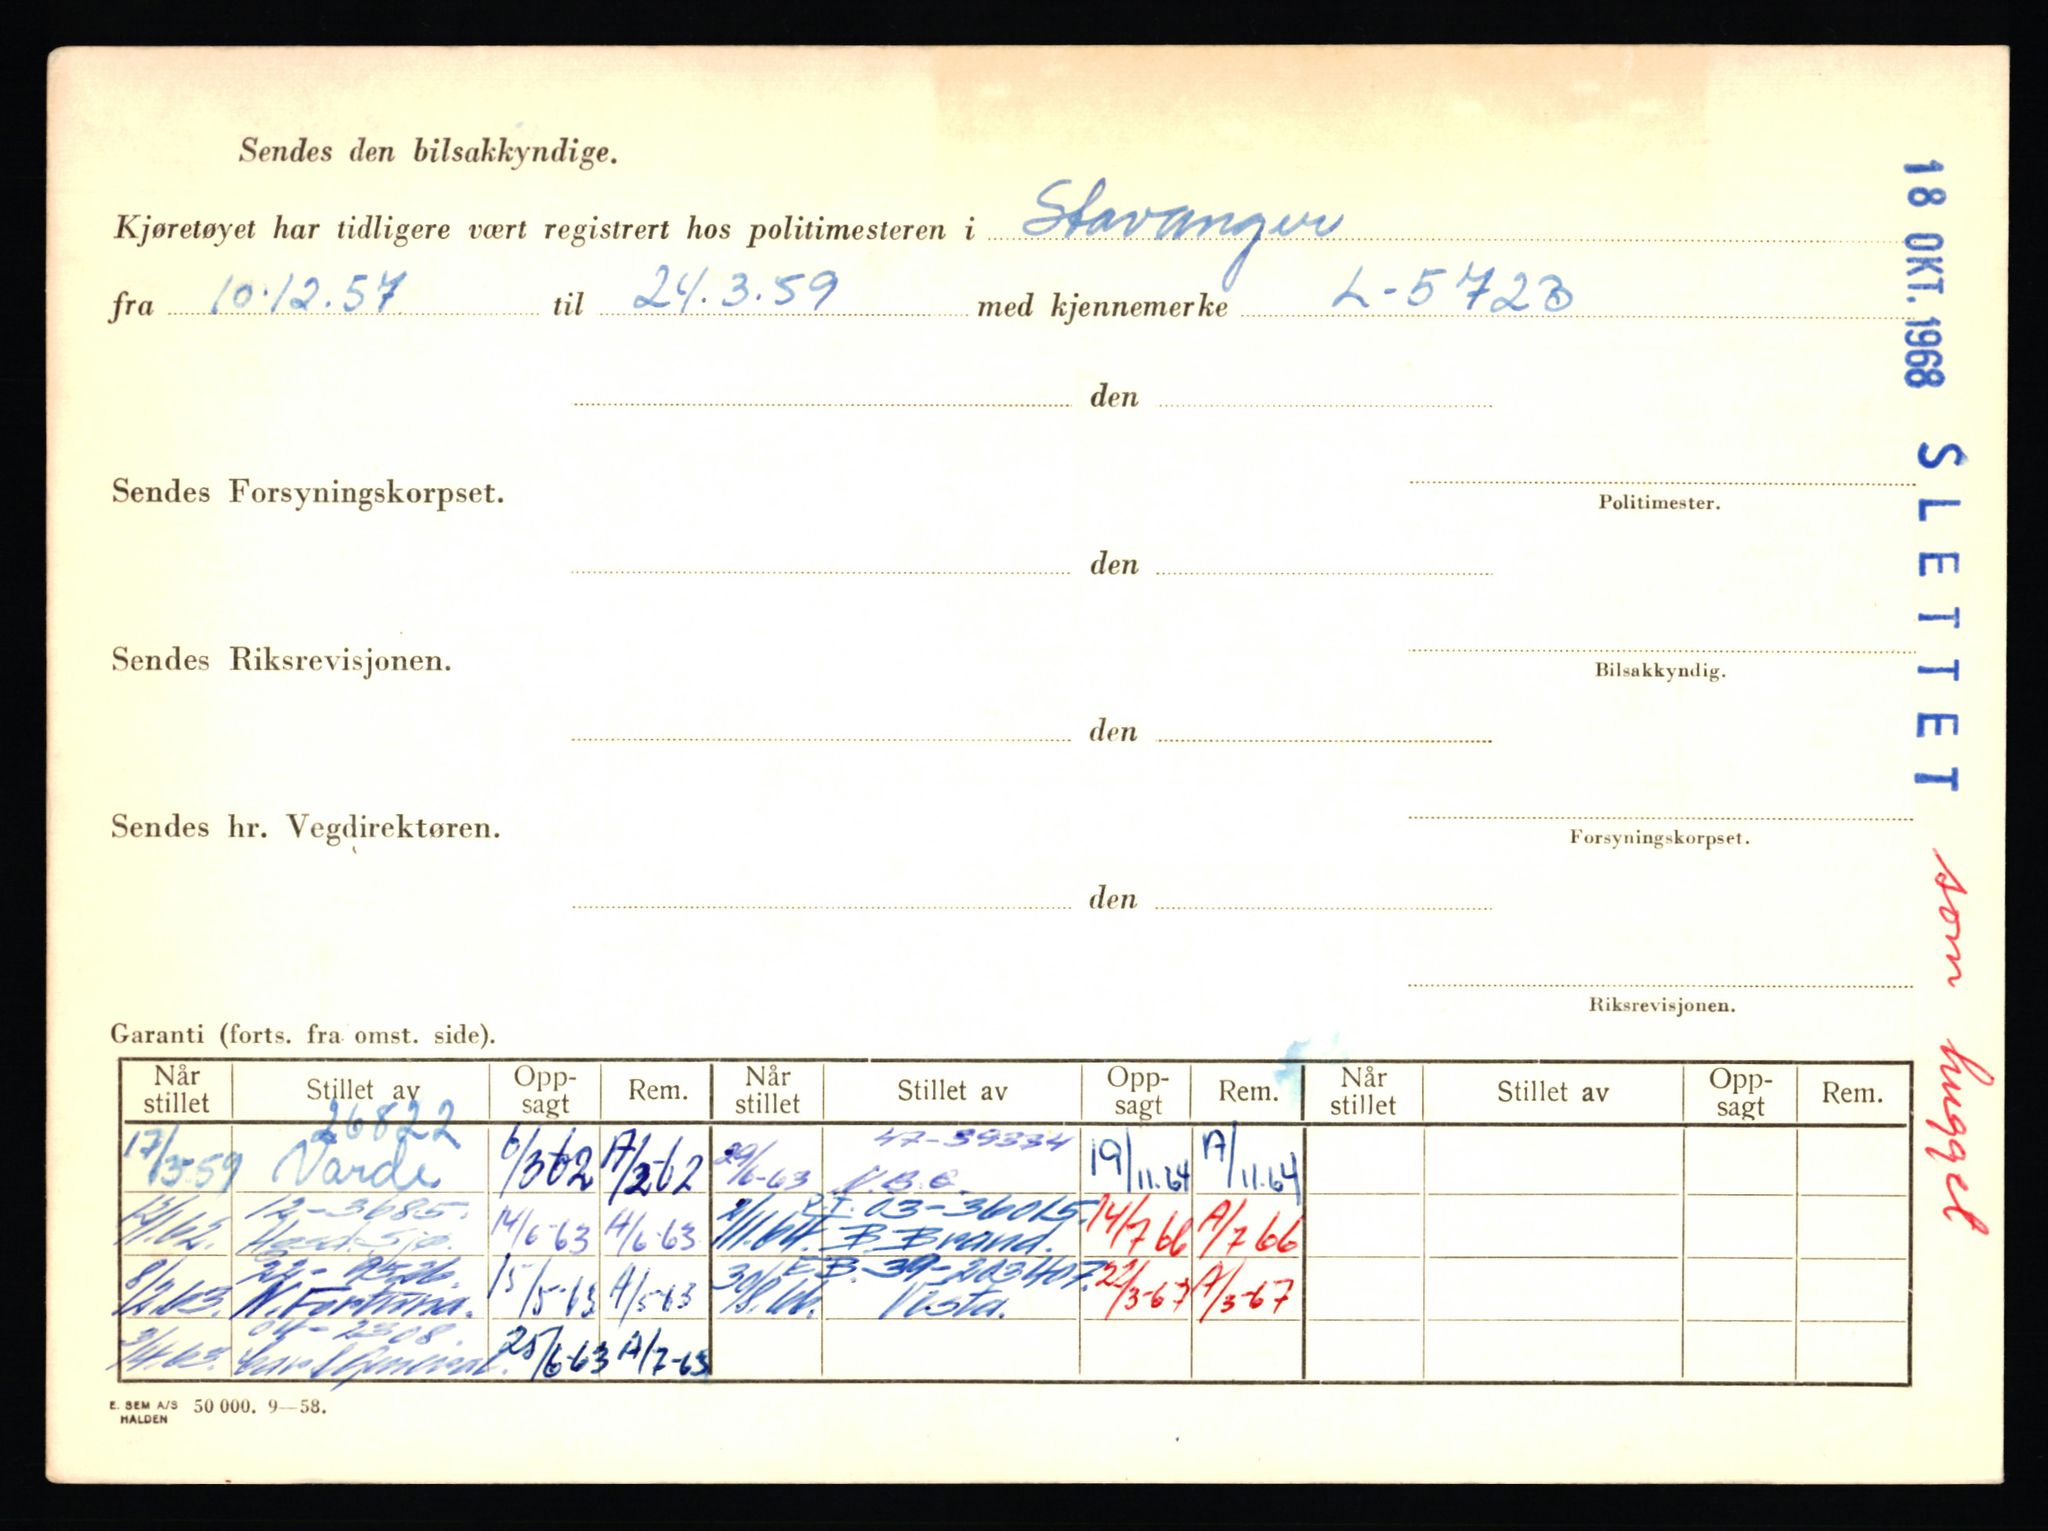 Sendes den bilsakkyndige.
Kjøretøyet har tidligere vært registrert hos politimesteren i Stavanger
fra 10.12.57 til 24.3.59 med kjennemerke
den
Sendes Forsyningskorpset.
Politimester.
den
Sendes Riksrevisjonen.
Bilsakkyndig.
den
Sendes hr. Vegdirektøren.
Forsyningskorpset.
den
Riksrevisjonen.
18 OKT. 1968 SLETTET som hugget
Garanti (forts. fra omst. side).
Når stillet Stillet av Opp-sagt Rem. Når stillet Stillet av Opp-sagt Rem. Når stillet Stillet av Opp-sagt Rem.
26822 47-39334
17/3-59 Varde 6/3-62 A/3-62 29/6-63 19/11.64 A/11.64
12-3685. 03-36015.
14/6-63 A/6-63 2/11.64. B. Brand. 14/7 66 A/7 66
E.B. 39-203407.
8/2.63. N. Fortuna. 15/5-63 A/5-63 30/8.66. Vesta. 22/3-67 A/3-67
04-2308.
3/4.63. 25/6-63 A/7-63
E. SEM A/S HALDEN 50 000. 9—58.